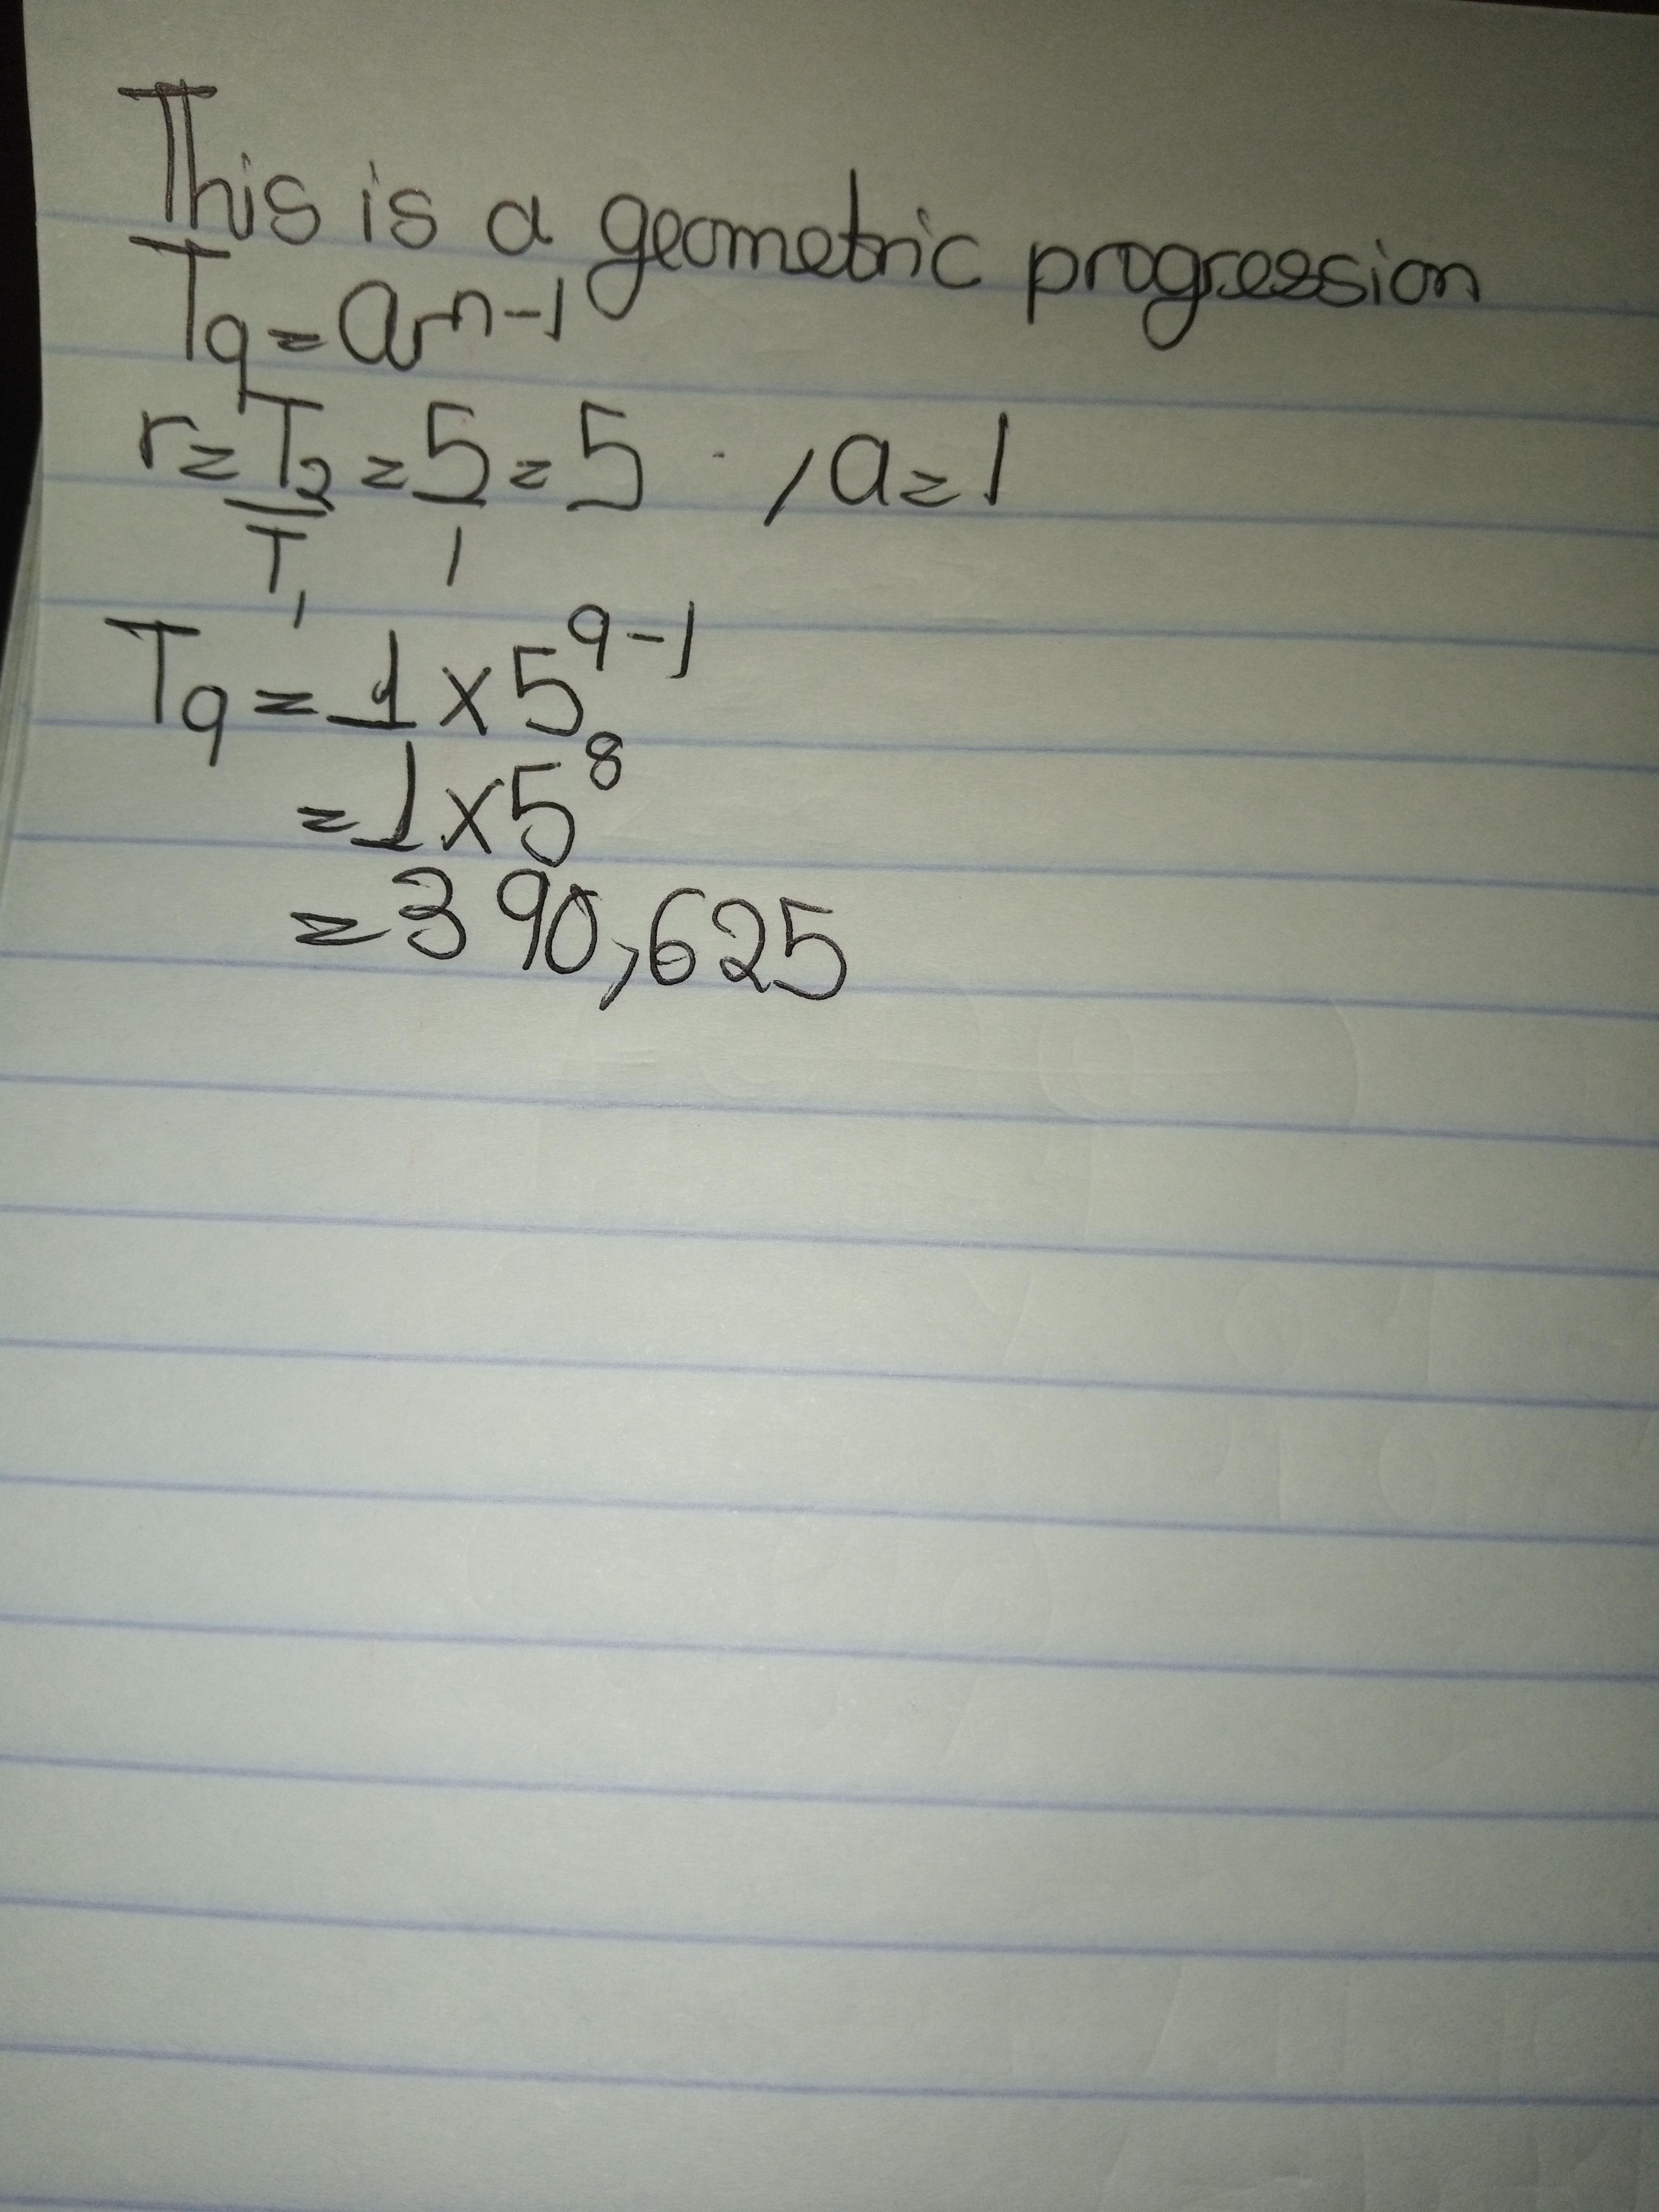 This is a geometric progression
T₉ = arⁿ⁻¹
r = T₂/T₁ = 5/1 = 5 , a = 1
T₉ = 1 × 5⁹⁻¹
= 1 × 5⁸
= 390,625